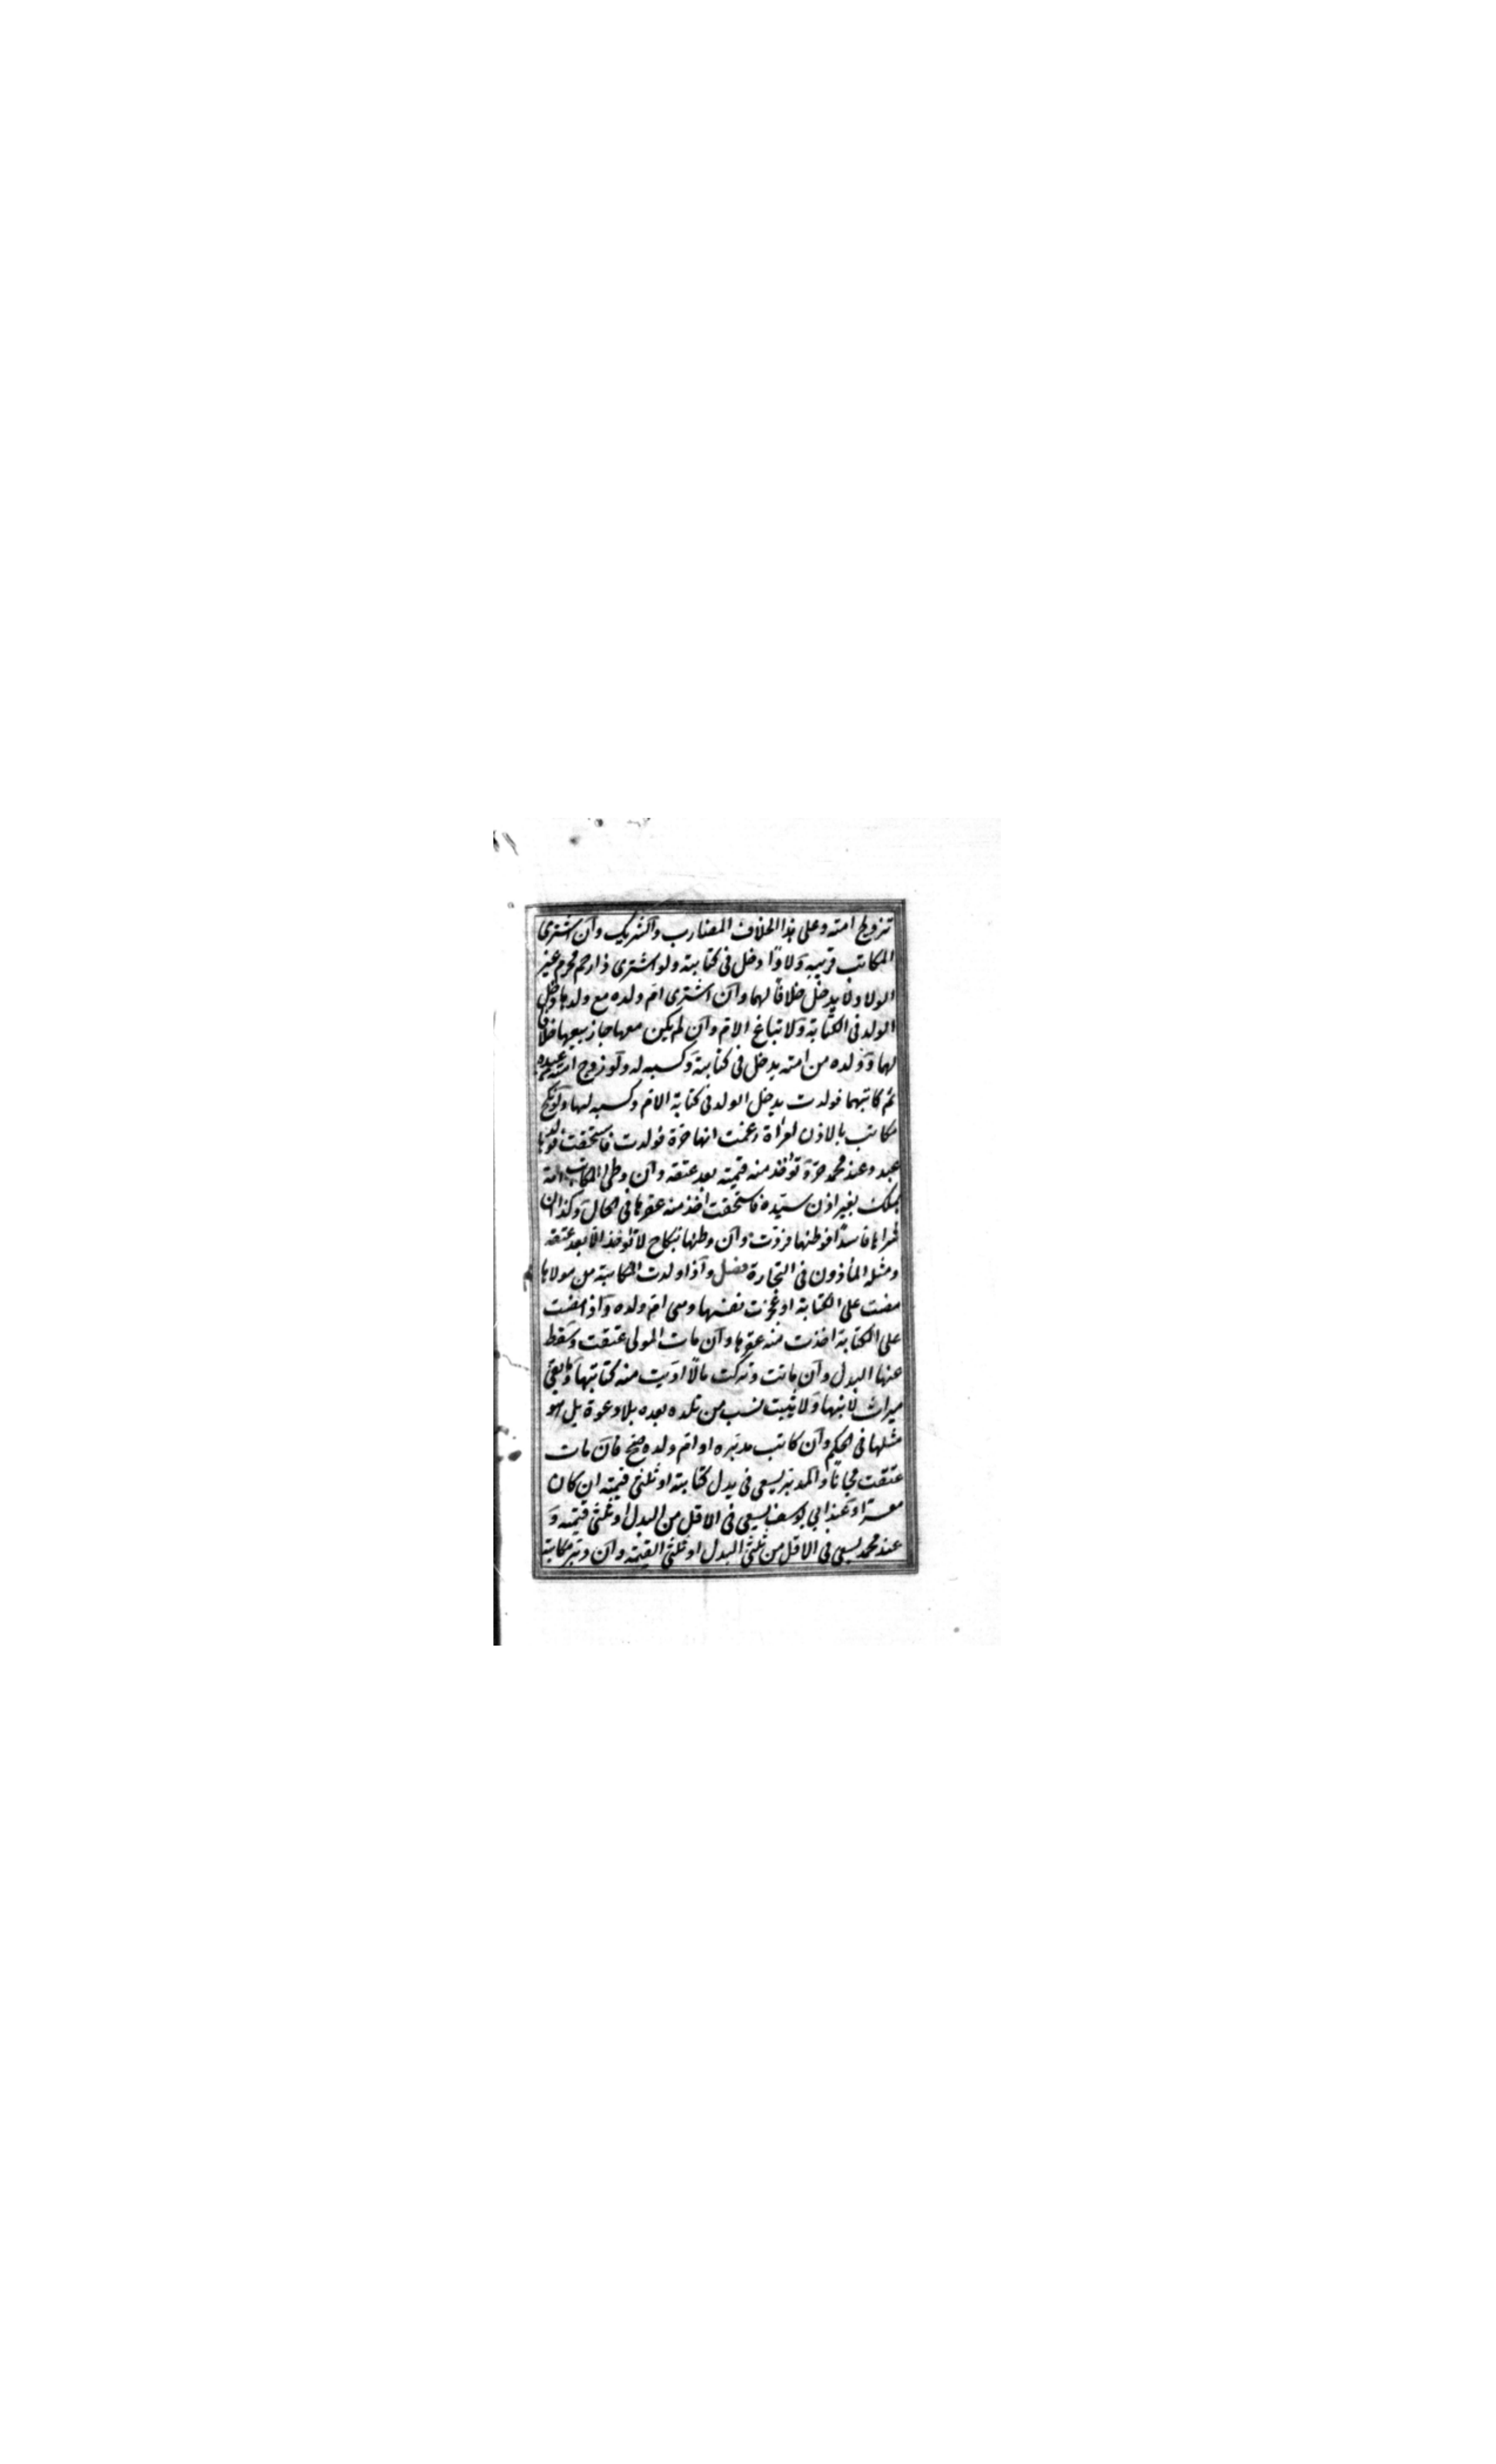 تزويج امته وعلى هذا الخلاف المضارب والشريك وان اشترى
المكاتب قريبه ولادا دخل فى كتابته ولو اشترى ذا رحم محرم غير
الولاد لا يدخل خلافا لهما وان اشترى ام ولده مع ولدها دخل
الولد فى الكتابة ولا تباع الام وان لم يكن معها جاز بيعها خلافا
لهما وولده من امته يدخل فى كتابته وكسبه له ولو زوج امته عبده
ثم كاتبهما فولدت يدخل الولد فى كتابة الام وكسبه لها ولو نكح
مكاتب بالاذن امراة زعمت انها حرة فولدت فاستحقت فولدها
عبد وعند محمد حر تؤخذ منه قيمته بعد عتقه وان وطئ المكاتب امة
بملك بغير اذن سيده فاستحقت اخذ منه عقرها فى الحال وكذا ان
شراها فاسدا فوطئها فردت وان وطئها بنكاح لا تؤخذ الا بعد عتقه
ومثله المأذون فى التجارة فصل واذا ولدت المكاتبة من مولاها
مضت على الكتابة او عجزت نفسها وهى ام ولده واذا مضت
على الكتابة اخذت منه عقرها وان مات المولى عتقت وسقط
عنها البدل وان ماتت وتركت مالا اديت منه كتابتها وما بقى
ميراث لابنها ولا يثبت نسب من تلده بعده بلا دعوة بل هو
مثلها فى الحكم وان كاتب مدبره او ام ولده صح فان مات
عتقت مجانا والمدبر يسعى فى بدل كتابته او ثلثى قيمته ان كان
معسرا وعند ابي يوسف يسعى فى الاقل من البدل او ثلثى قيمته و
عند محمد يسعى فى الاقل من ثلثى البدل او ثلثى القيمة وان دبر مكاتبه